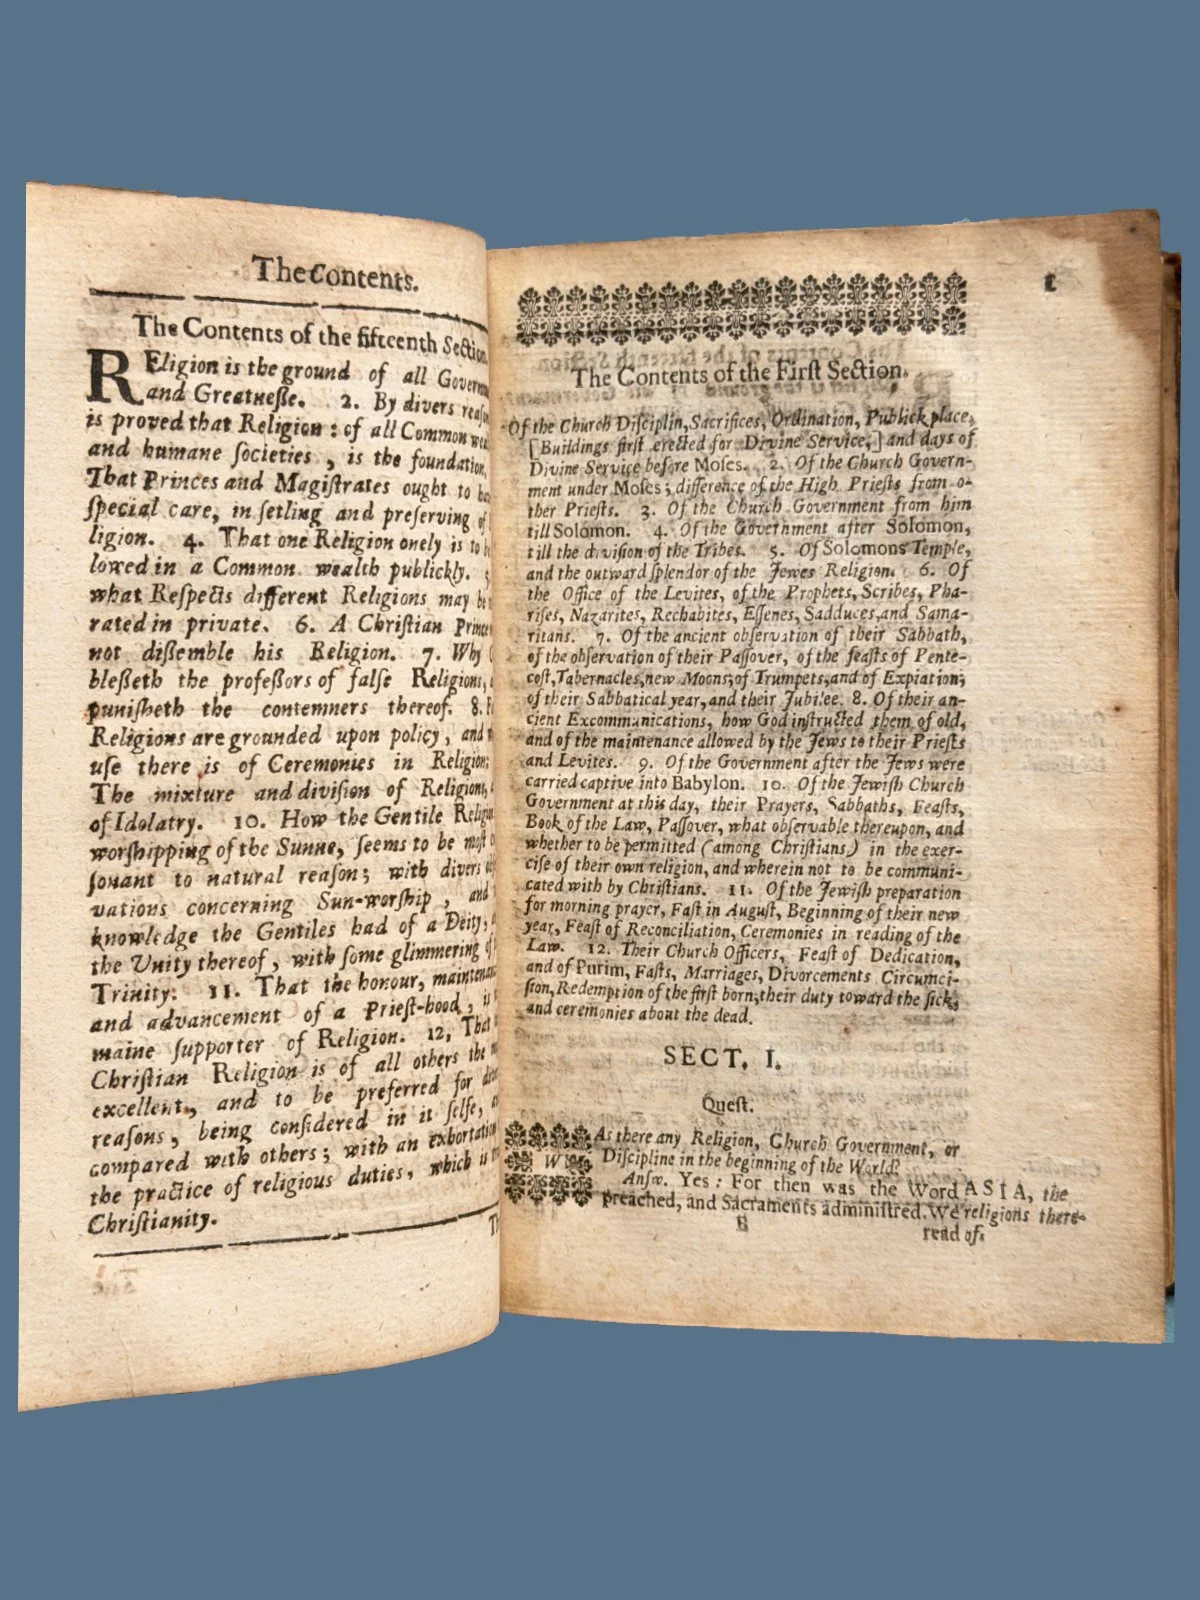 The Contents.
The Contents of the fifteenth Section.
REligion is the ground of all
and Greatneſſe. 2. By divers
is proved that Religion: of all Common
and humane ſocieties, is the foundation,
That Princes and Magiſtrates ought to
ſpecial care, in ſetling and preſerving
ligion. 4. That one Religion onely is to
lowed in a Common wealth publickly.
what Reſpects different Religions may be
rated in private. 6. A Chriſtian
not diſſemble his Religion. 7. Why
bleſſeth the profeſſors of falſe Religions,
puniſheth the contemners thereof. 8.
Religions are grounded upon policy, and
uſe there is of Ceremonies in Religion;
The mixture and diviſion of Religions,
of Idolatry. 10. How the Gentile
worſhipping of the Sunne, ſeems to be moſt
ſonant to natural reaſon; with divers
vations concerning Sun-worſhip, and
knowledge the Gentiles had of a Deity,
the Unity thereof, with ſome glimmering
Trinity: 11. That the honour,
and advancement of a Prieſt-hood, is
maine ſupporter of Religion. 12, That
Chriſtian Religion is of all others the
excellent, and to be preferred for
reaſons, being conſidered in it ſelfe,
compared with others; with an exhortation
the practice of religious duties, which is
Chriſtianity.
1
The Contents of the Firſt Section.
Of the Church Diſciplin, Sacrifices, Ordination, Publick place,
[Buildings firſt erected for Divine Service,] and days of
Divine Service before Moſes. 2. Of the Church Govern-
ment under Moſes; difference of the High Prieſts from o-
ther Prieſts. 3. Of the Church Government from him
till Solomon. 4. Of the Government after Solomon,
till the diviſion of the Tribes. 5. Of Solomons Temple,
and the outward ſplendor of the Jewes Religion. 6. Of
the Office of the Levites, of the Prophets, Scribes, Pha-
riſes, Nazarites, Rechabites, Eſſenes, Sadduces, and Sama-
ritans. 7. Of the ancient obſervation of their Sabbath,
of the obſervation of their Paſſover, of the feaſts of Pente-
coſt, Tabernacles, new Moons, of Trumpets, and of Expiation;
of their Sabbatical year, and their Jubilee. 8. Of their an-
cient Excommunications, how God inſtructed them of old,
and of the maintenance allowed by the Jews to their Prieſts
and Levites. 9. Of the Government after the Jews were
carried captive into Babylon. 10. Of the Jewiſh Church
Government at this day, their Prayers, Sabbaths, Feaſts,
Book of the Law, Paſſover, what obſervable thereupon, and
whether to be permitted (among Chriſtians,) in the exer-
ciſe of their own religion, and wherein not to be communi-
cated with by Chriſtians. 11. Of the Jewiſh preparation
for morning prayer, Faſt in Auguſt, Beginning of their new
year, Feaſt of Reconciliation, Ceremonies in reading of the
Law. 12. Their Church Officers, Feaſt of Dedication,
and of Purim, Faſts, Marriages, Divorcements Circumci-
ſion, Redemption of the firſt born, their duty toward the ſick,
and ceremonies about the dead.
SECT. I.
Queſt.
WAs there any Religion, Church Government, or
Diſcipline in the beginning of the World?
Anſw. Yes: For then was the Word ASIA, the
preached, and Sacraments adminiſtred. We religions there-
B read of.